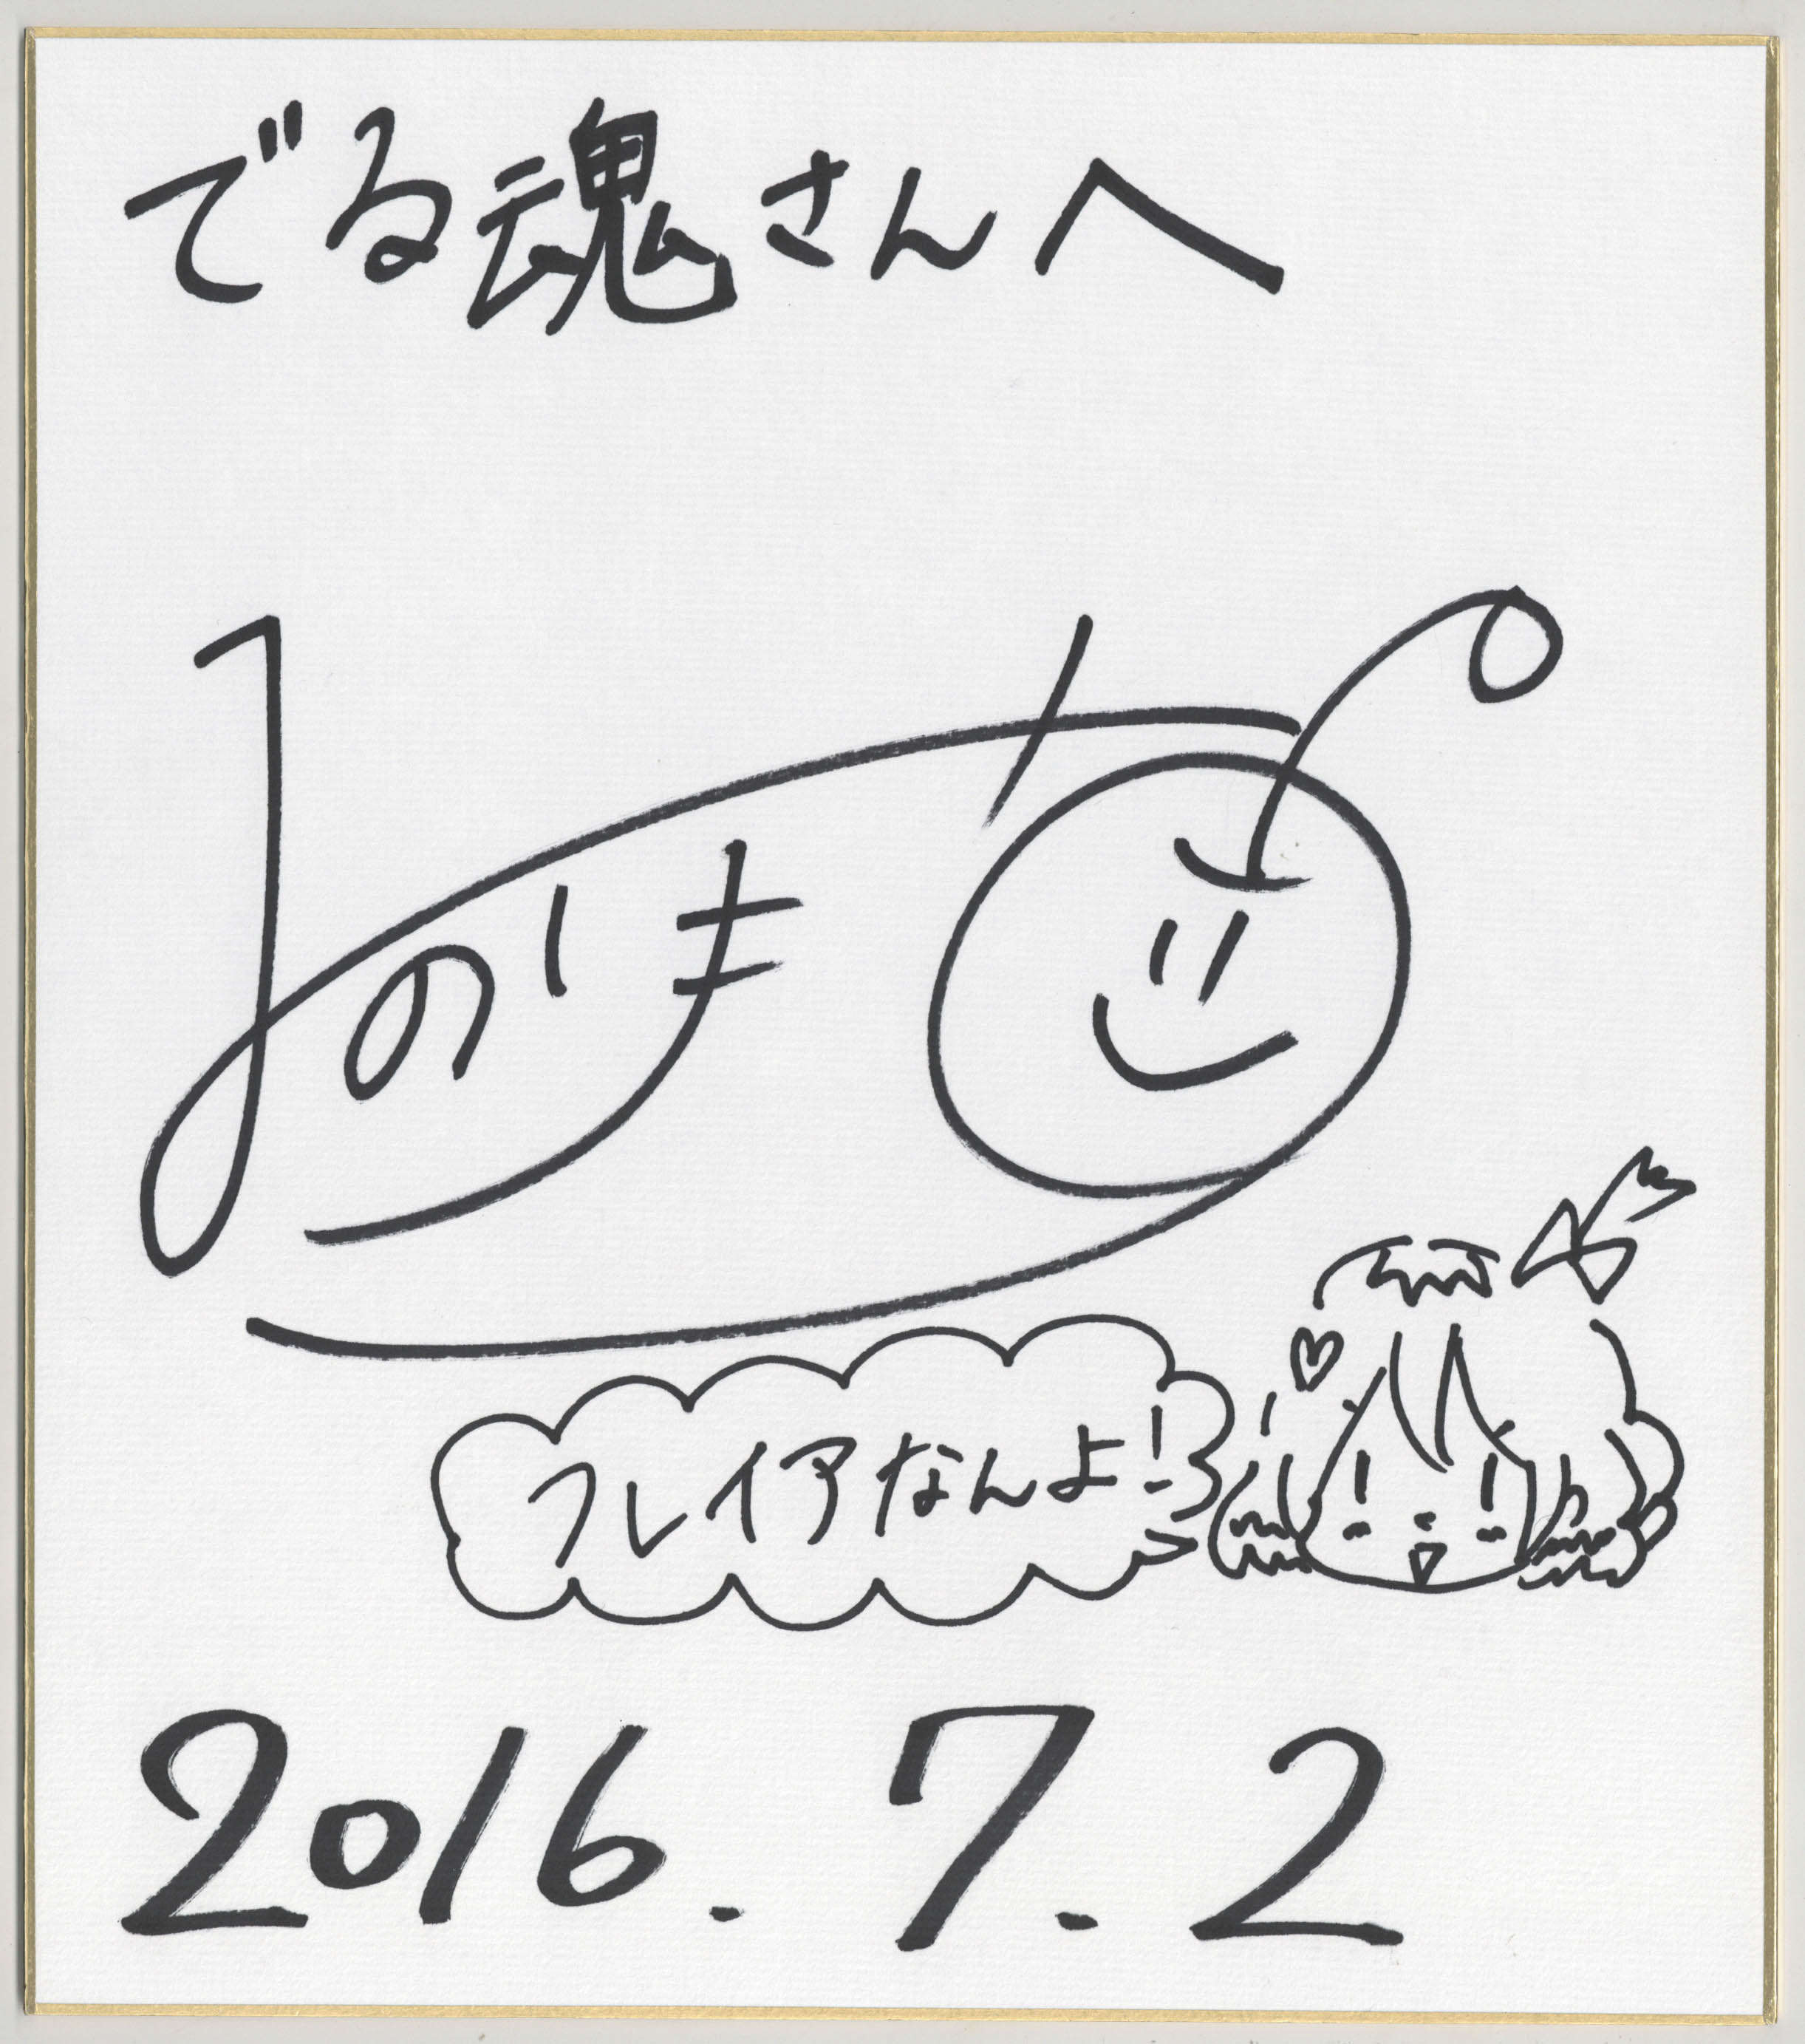 でる魂さんへ
フレイアなんよ!
2016.7.2